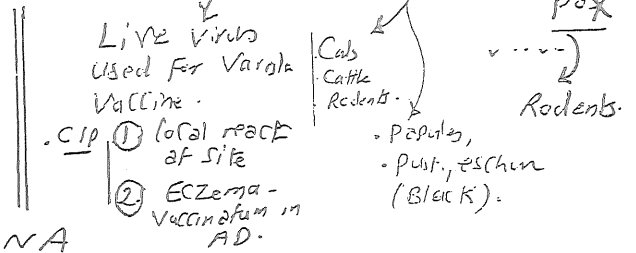 Pox
Live virus
used for Variola
Vaccine.
. C/P ① local react
at site
② Eczema -
Vaccinatum in
AD.
NA
. Cats
. Cattle
Rodents.
. Papules,
. Pust., eschar
(Black).
Rodents.